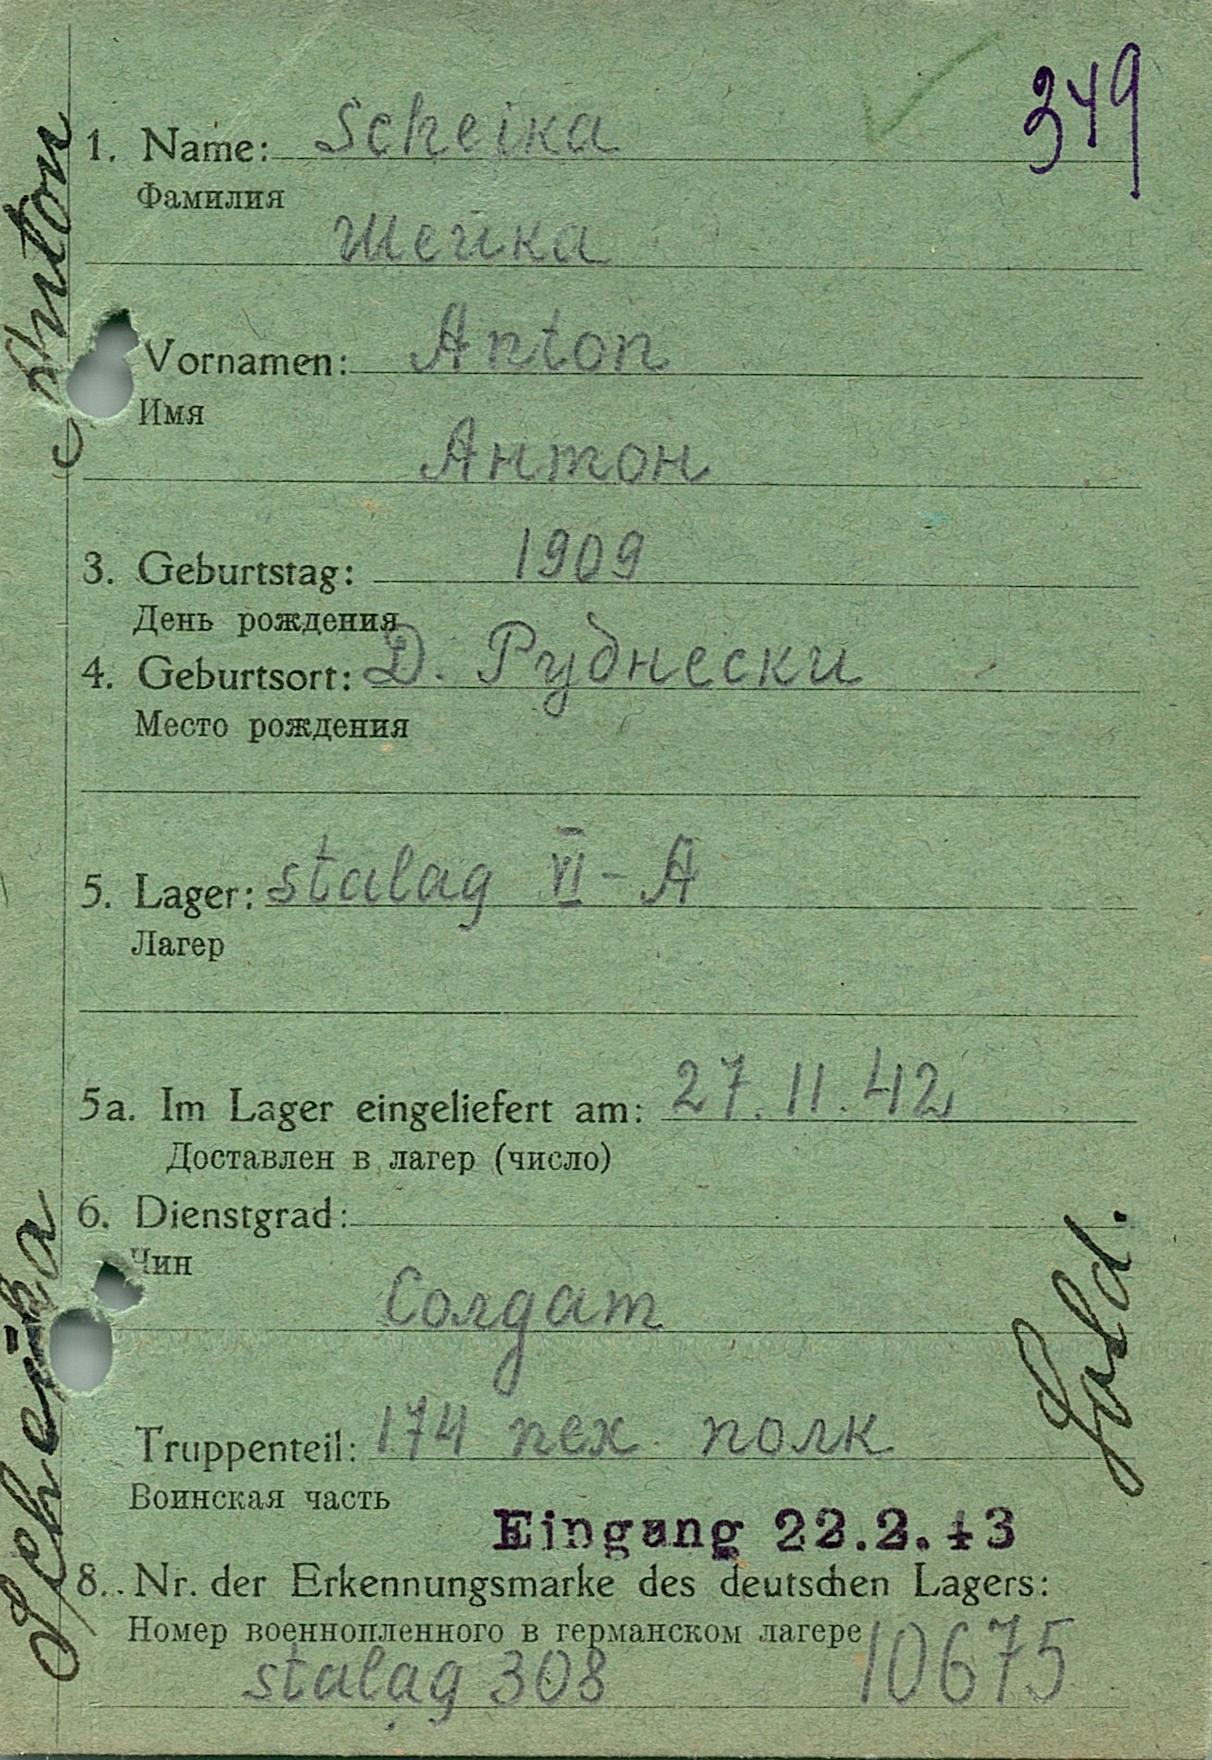 349
1. Name: Scheika
Фамилия
Шейка
Vornamen: Anton
Имя
Антон
3. Geburtstag: 1909
День рождения
4. Geburtsort: Д. Руднески
Место рождения
5. Lager: stalag VI-A
Лагер
5a. Im Lager eingeliefert am: 27.11.42
Доставлен в лагер (число)
6. Dienstgrad:
Чин
Солдат
Truppenteil: 174 пех. полк
Воинская часть
Eingang 22.2.43
8. Nr. der Erkennungsmarke des deutschen Lagers:
Номер военнопленного в германском лагере 10675
stalag 308
Scheika Anton
Sold.